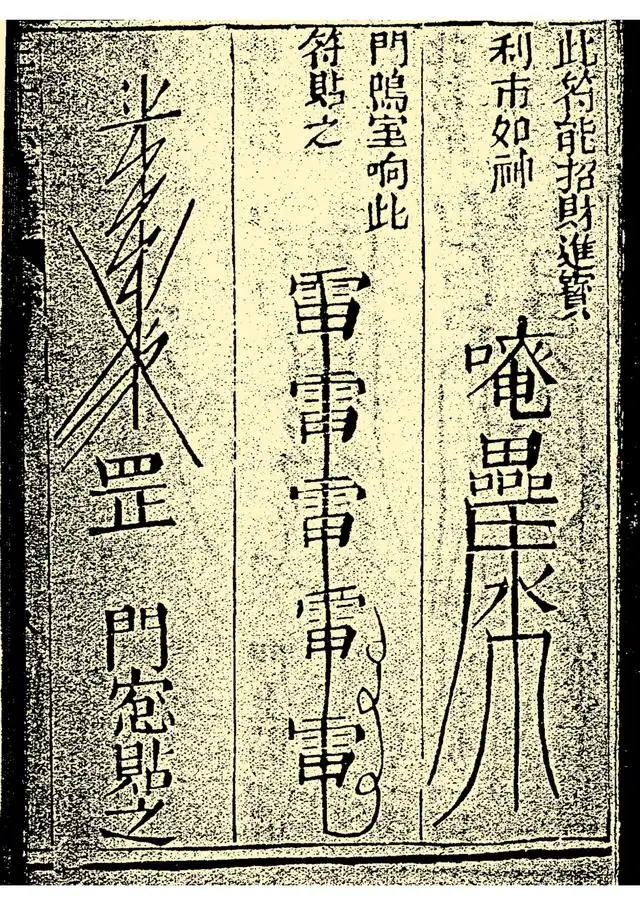 此符能招財進寶
利市如神
唵
門鳴室响此
符貼之
雷雷雷電電
罡
門窓貼之